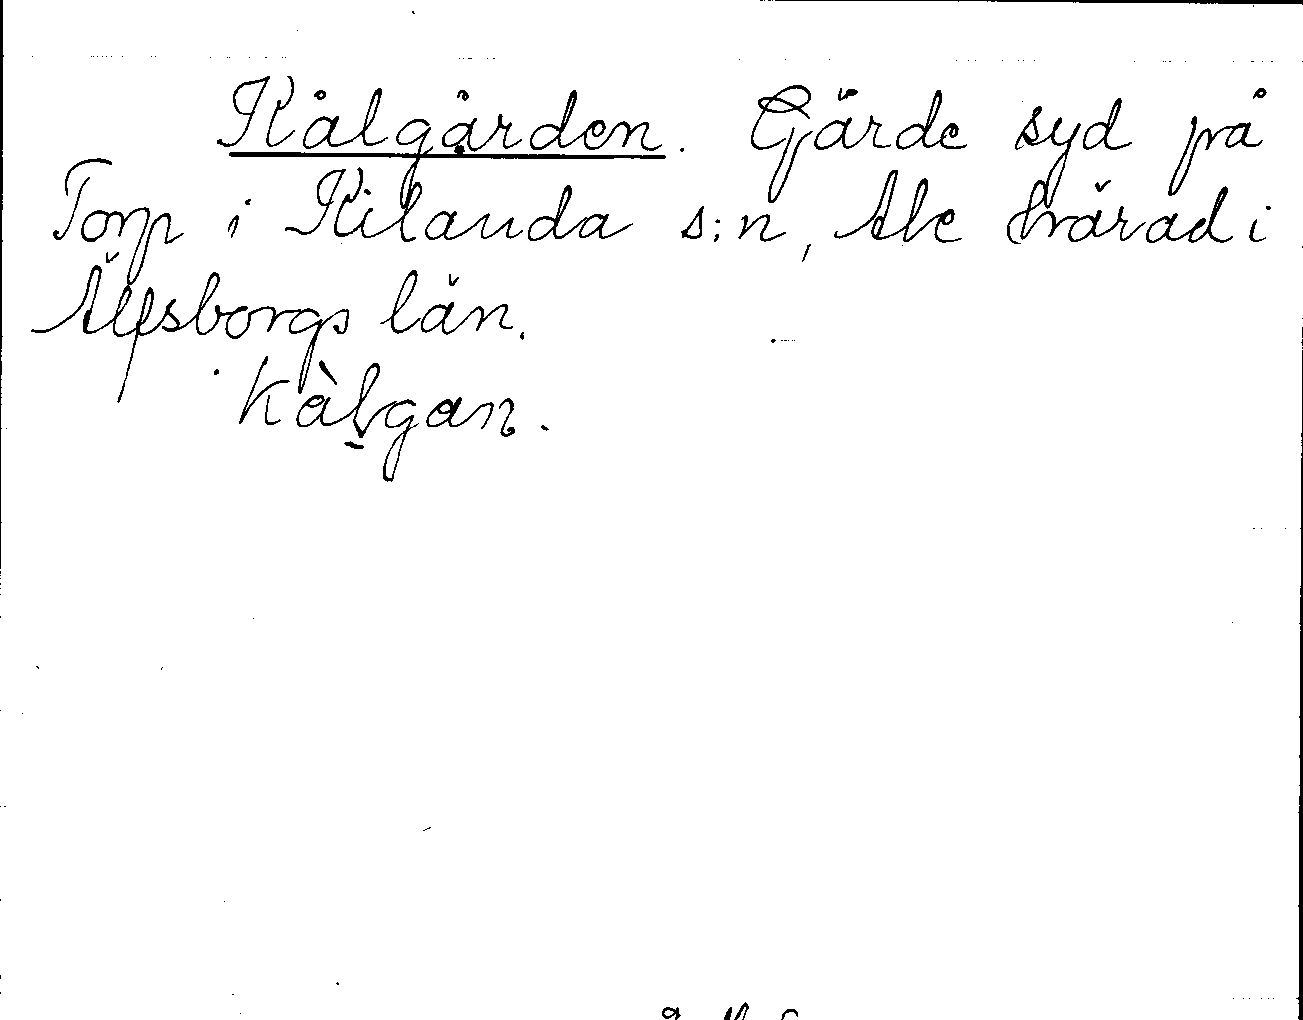 Kålgården. Gärde syd på
Torp i Kilanda s:n, Ale härad i
Älfsborgs län.
Kàḻgan.